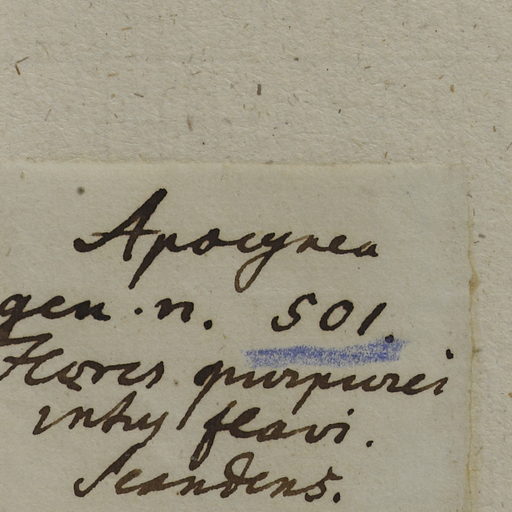 Apocynea
gen. n. 501.
Flores purpurei
intus flavi.
Scandens.